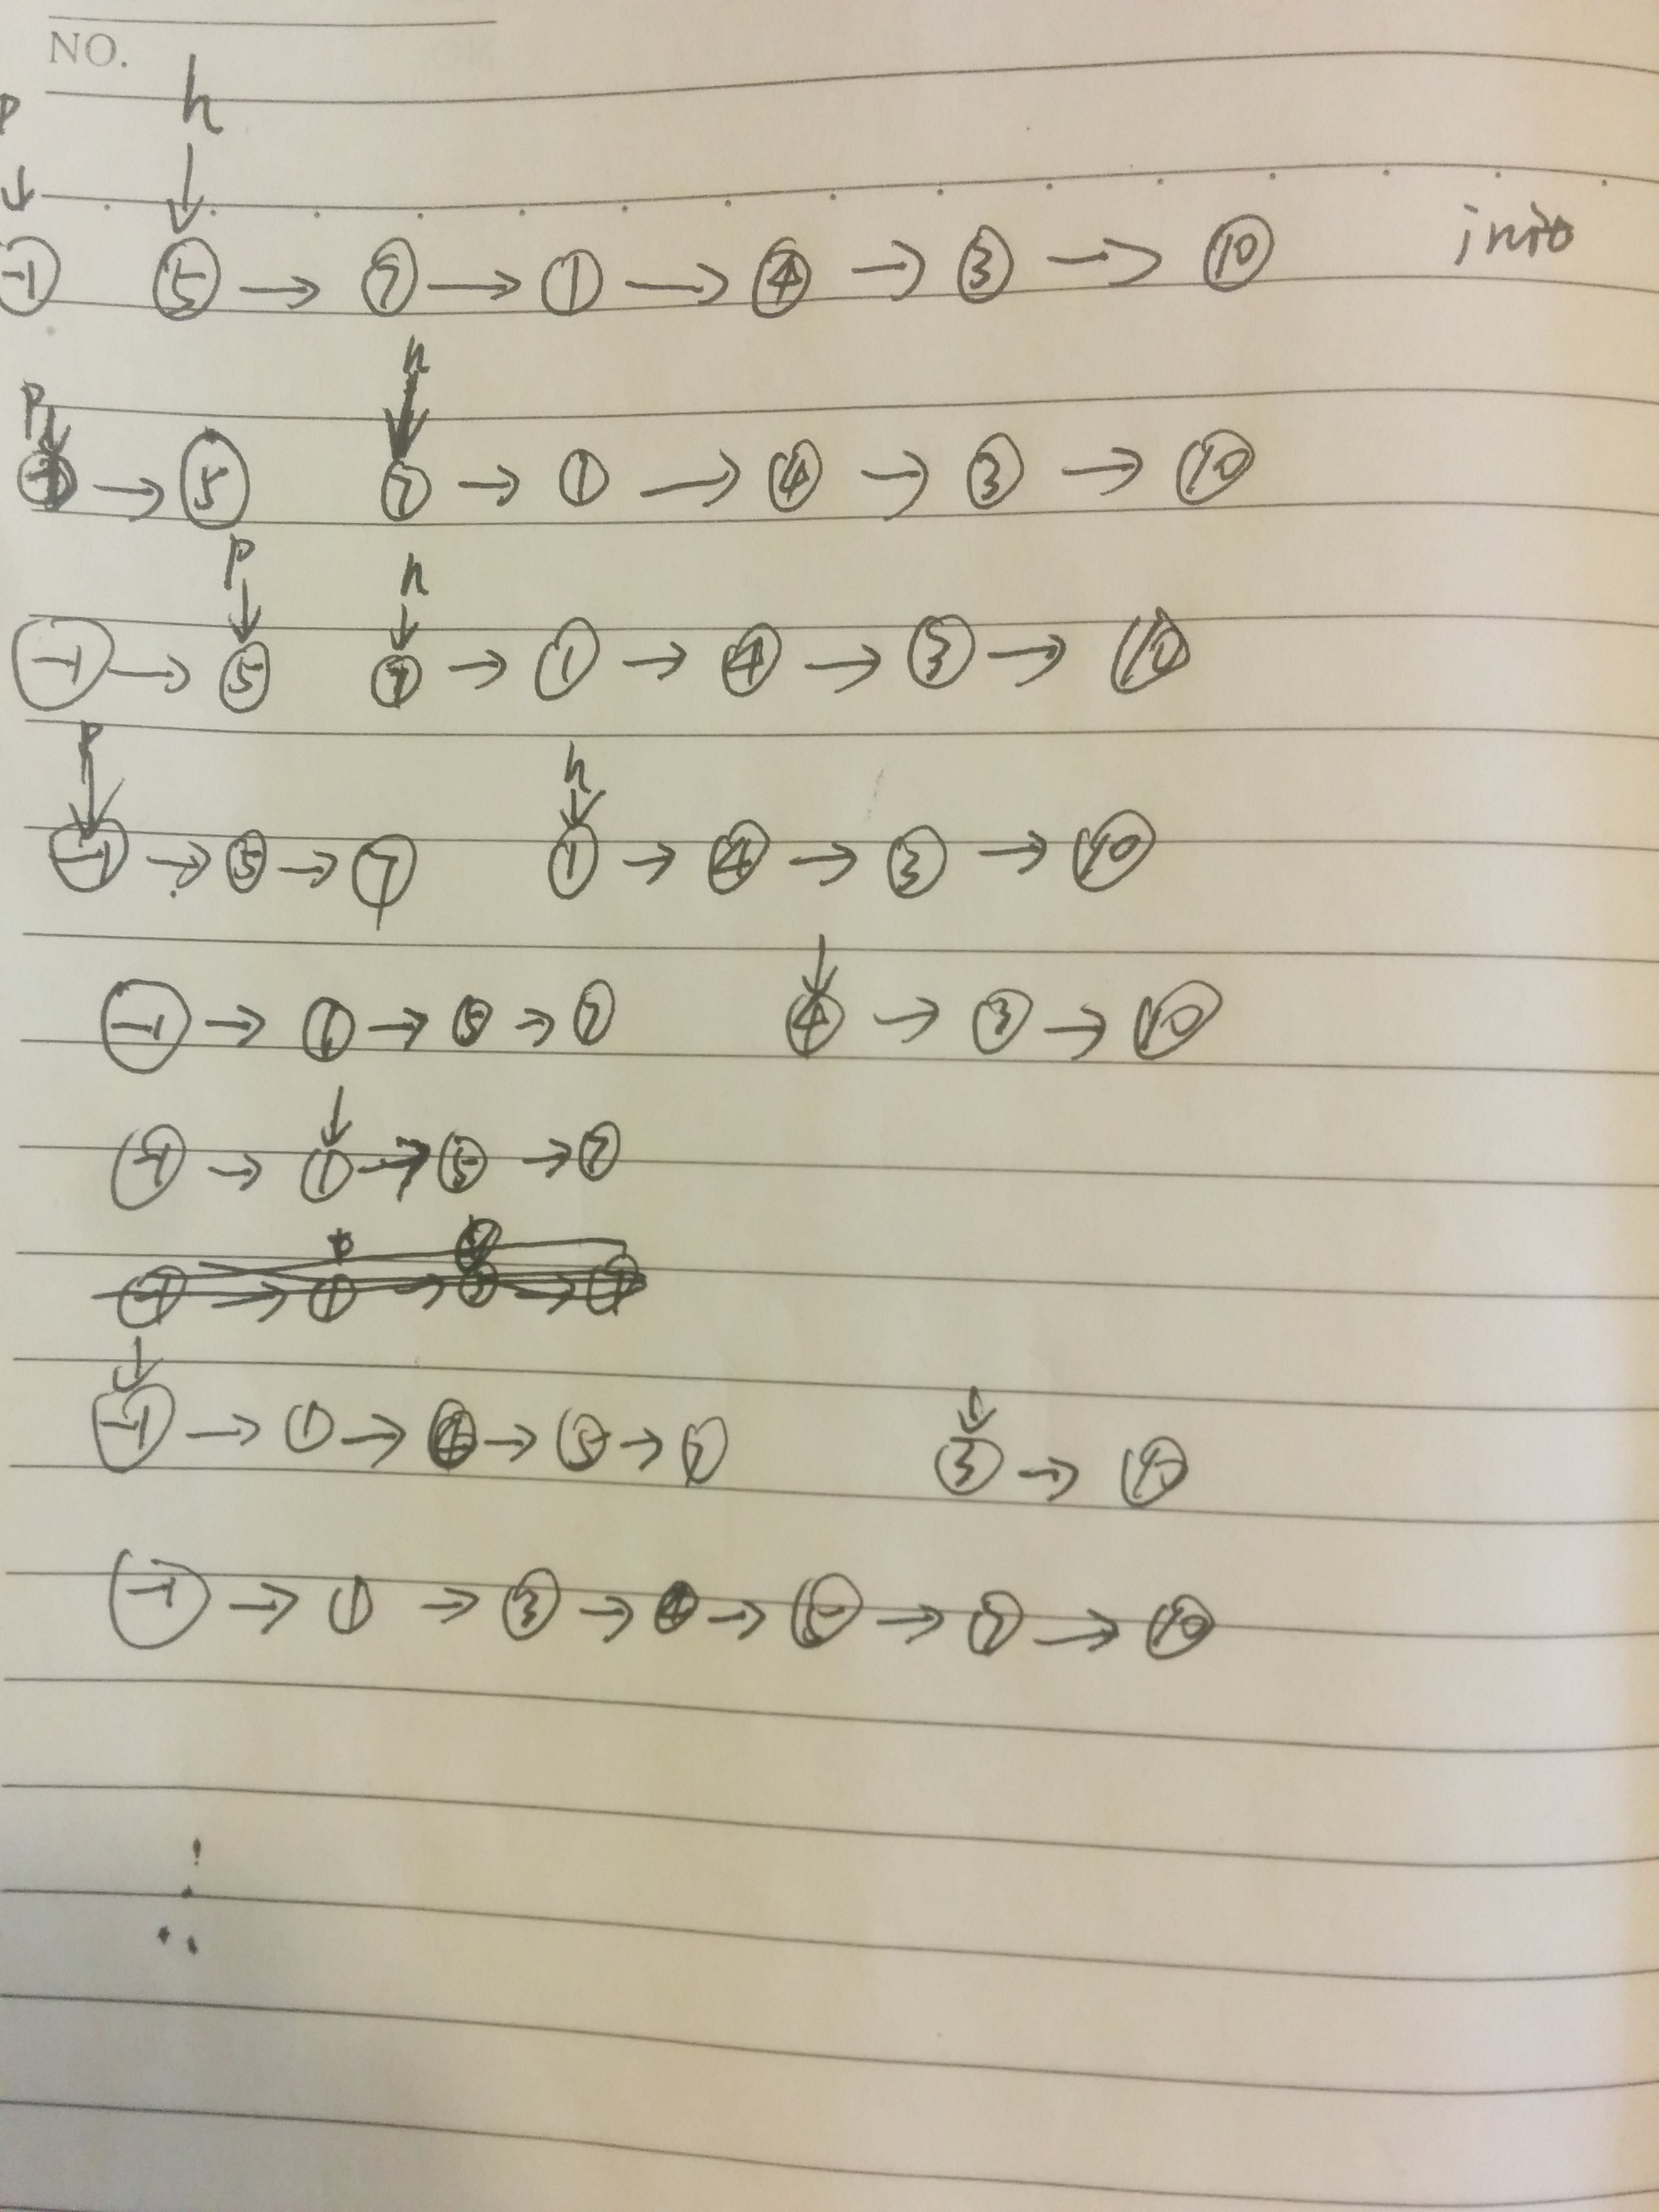 NO.
P h
↓ ↓
-1 5 → 7 → 1 → 4 → 3 → 10
P h
↓ ↓
→ 5 7 → 1 → 4 → 3 → 10
P h
↓ ↓
-1 → 5 7 → 1 → 4 → 3 → 10
P h
↓ ↓
-1 → 5 → 7 1 → 4 → 3 → 10
↓
-1 → 1 → 5 → 7 4 → 3 → 10
↓
-1 → 1 → 5 → 7
↓ ↓
-1 → 1 → 4 → 5 → 7 3 → 10
-1 → 1 → 3 → 4 → 5 → 7 → 10